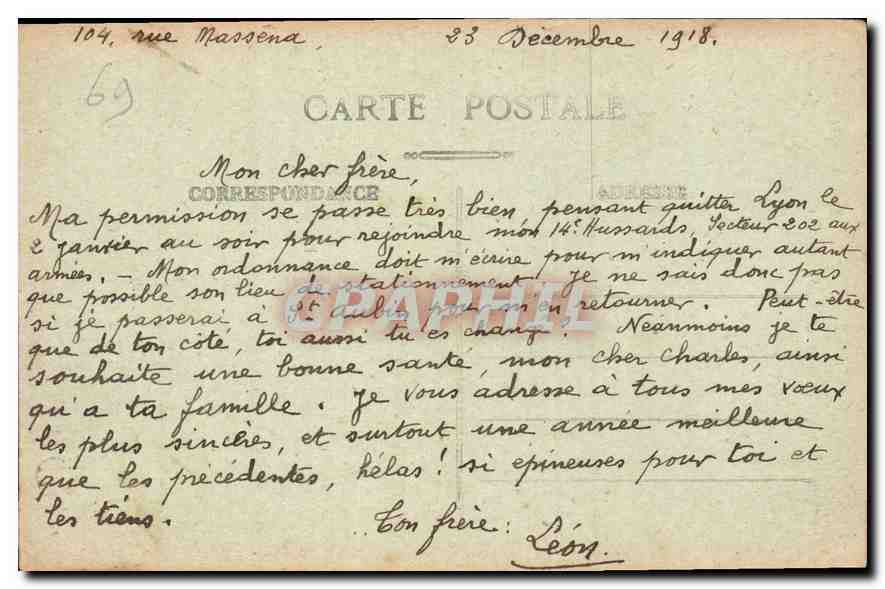 104, rue Masséna, 23 Décembre 1918.
69
CARTE POSTALE
Mon cher frère,
CORRESPONDANCE ADRESSE
Ma permission se passe très bien, pensant quitter Lyon le
2 janvier au soir pour rejoindre mon 14e Hussards, Secteur 202 aux
armées. – Mon ordonnance doit m'écrire pour m'indiquer autant
que possible son lieu de stationnement, je ne sais donc pas
si je passerai à St aubin pour m'en retourner. Peut-être
que de ton côté, toi aussi tu es changé? Néanmoins je te
souhaite une bonne santé, mon cher Charles, ainsi
qu'a ta famille. Je vous adresse à tous mes vœux
les plus sincères, et surtout une année meilleure
que les précédentes, hélas! si epineuses pour toi et
les tiens. Ton frère:
Léon.
CPAPHIL